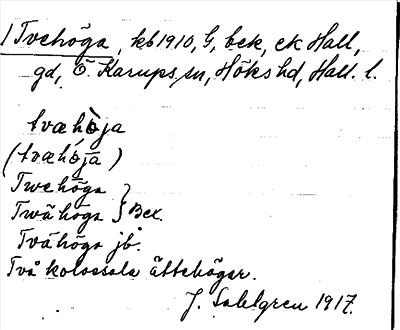 1 Tvehöga, kb 1910, G, bek, ek Hall,
gd, Ö. Karups sn, Höks hd, Hall. l.
tvæhòja
(tvæhò́ja)
Twehöga
Twähöga } Bex.
Tvähöga jb.
Två kolossala ättehögar.
J. Sahlgren 1917.